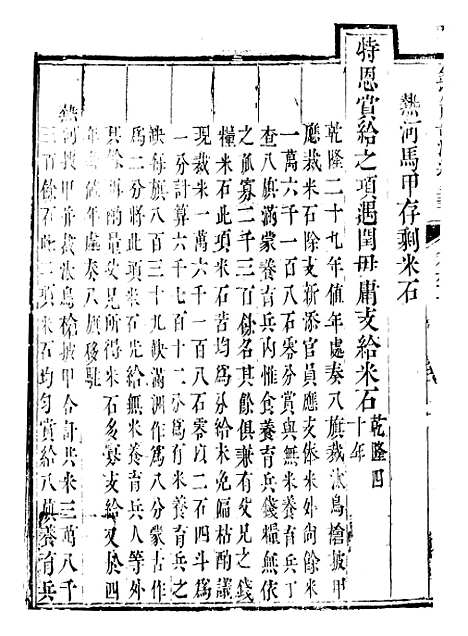 特恩賞給之項遇閏毋庸支給米石乾隆四
十年
熱河馬甲存剩米石
乾隆二十九年值年處奏八旗裁汰鳥槍披甲
應裁米石除支新添官員應支俸米外尚餘米
一萬六千一百八石零分賞與無米養育兵丁
查八旗滿蒙養育兵內惟食養育兵錢糧無依
之孤寡二千三百餘名其餘俱兼有父兄之錢
糧米石此項米石均為分給未免偏枯酌議
現裁米一萬六千一百八石零以二石四斗為
一分計算六千七百十二分為有米養育兵之
缺每旗八百三十九缺滿洲作為八分蒙古作
為二分將此項米石先給無米養育兵人等外
其餘再酌量父兄所得米石多寡支給又於四
年奏八旗移駐
熱河披甲并裁汰鳥槍披甲合計共米三萬八千
三百餘石此二項米石均勻賞給八旗養育兵